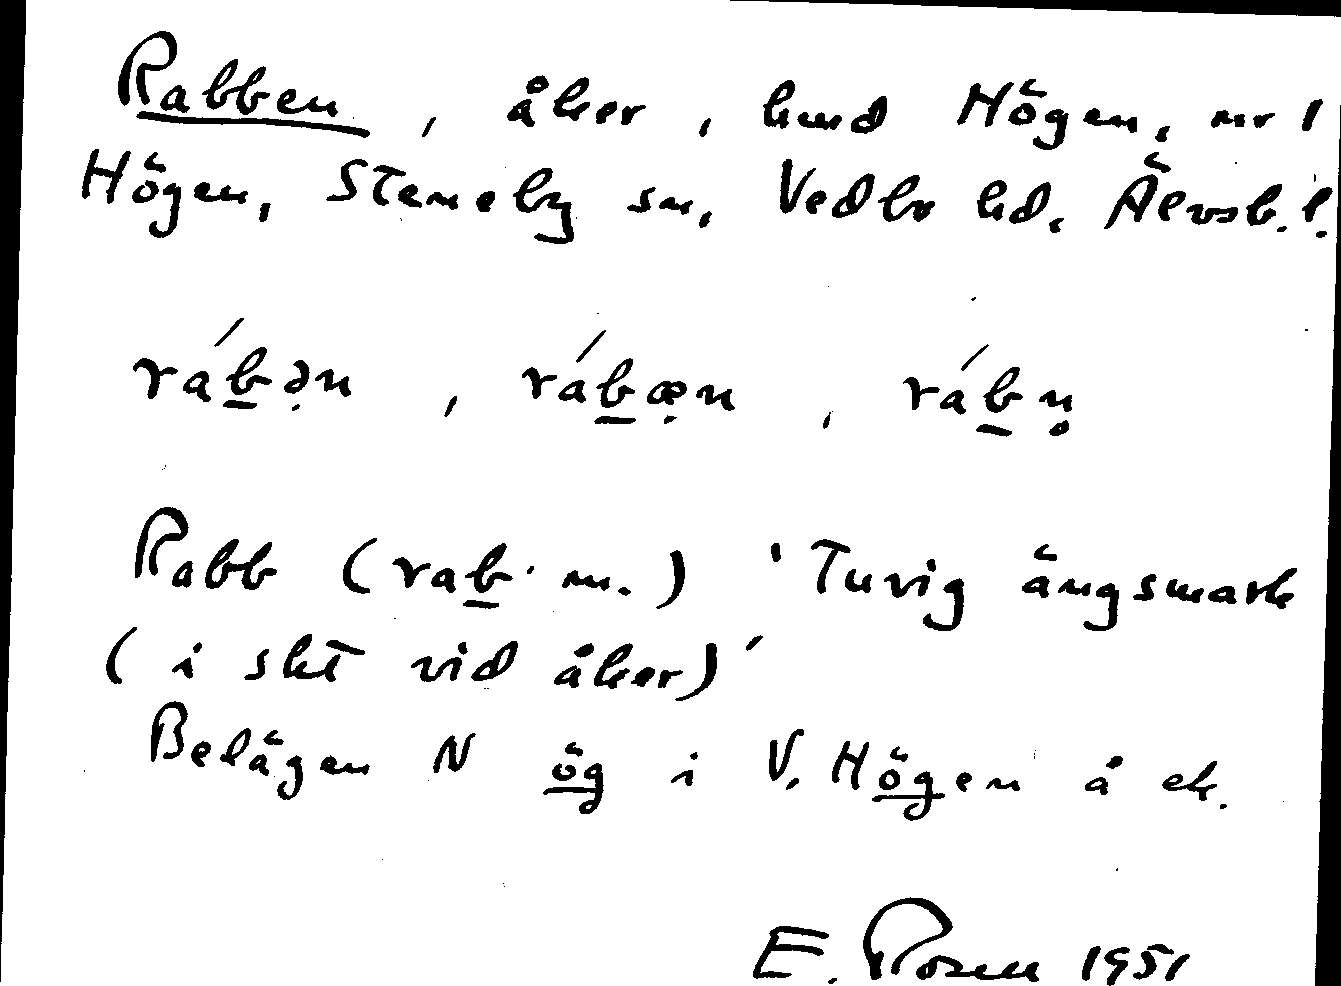 Rabben, åker, hmd Högen, nr 1
Högen, Steneby sn, Vedbo hd. Älvsb. l.
rábə̣n, rábæ̣n, rábn̥
Rabb (rab· m.) 'Tuvig ängsmark
(i sht vid åker)'
Belägen N ög i V. Högen å ek.
E. Rosen 1951